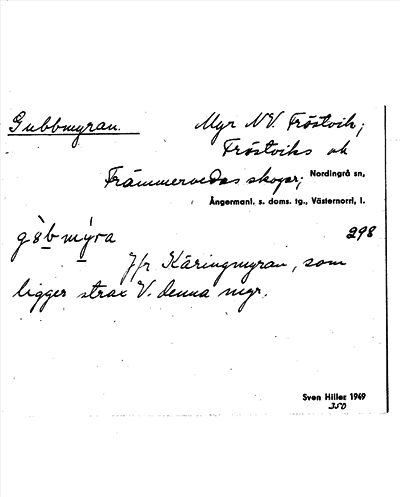 Gubbmyran.
Myr NV. Fröstvik;
Fröstviks ok
Främmervedas skogar; Nordingrå sn,
Ångermanl. s. doms. tg., Västernorrl. l.
298
Jfr Käringmyran, som
ligger strax V. denna myr.
Sven Hiller 1949
350